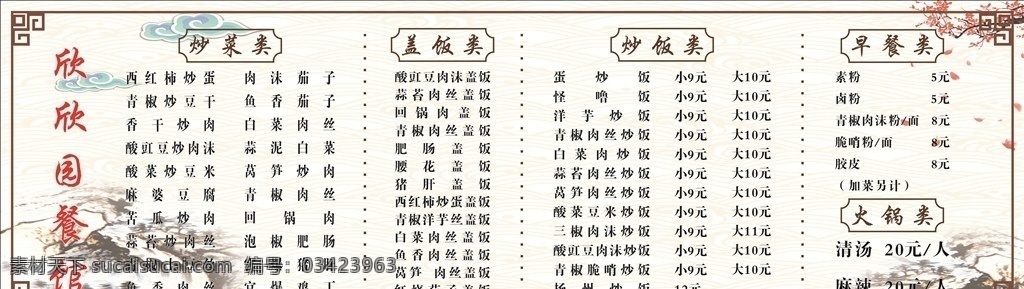 欣欣园餐馆
炒菜类
西红柿炒蛋 肉沫茄子
青椒炒豆干 鱼香茄子
香干炒肉 白菜肉丝
酸豇豆炒肉沫 蒜泥白菜
酸菜炒豆米 莴笋炒肉
麻婆豆腐 青椒肉丝
苦瓜炒肉 回锅肉
蒜苔炒肉丝 泡椒肥肠
鱼香肉丝 宫爆鸡丁
盖饭类
酸豇豆肉沫盖饭
蒜苔肉丝盖饭
回锅肉盖饭
青椒肉丝盖饭
肥肠盖饭
腰花盖饭
猪肝盖饭
西红柿炒蛋盖饭
青椒洋芋丝盖饭
白菜肉丝盖饭
鱼香肉丝盖饭
莴笋肉丝盖饭
炒饭类
蛋炒饭 小9元 大10元
怪噜饭 小9元 大10元
洋芋炒饭 小9元 大10元
青椒肉丝炒饭 小9元 大10元
白菜肉丝炒饭 小9元 大10元
蒜苔肉丝炒饭 小9元 大10元
莴笋肉丝炒饭 小9元 大10元
酸菜豆米炒饭 小9元 大10元
三椒肉沫炒饭 小9元 大11元
酸豇豆肉沫炒饭 小9元 大10元
青椒脆哨炒饭 小9元 大10元
扬州炒饭 12元
早餐类
素粉 5元
卤粉 5元
青椒肉沫粉/面 8元
脆哨粉/面 8元
胶皮 8元
(加菜另计)
火锅类
清汤 20元/人
麻辣 20元/人
素材天下 sucaisucai.com 编号：03423963